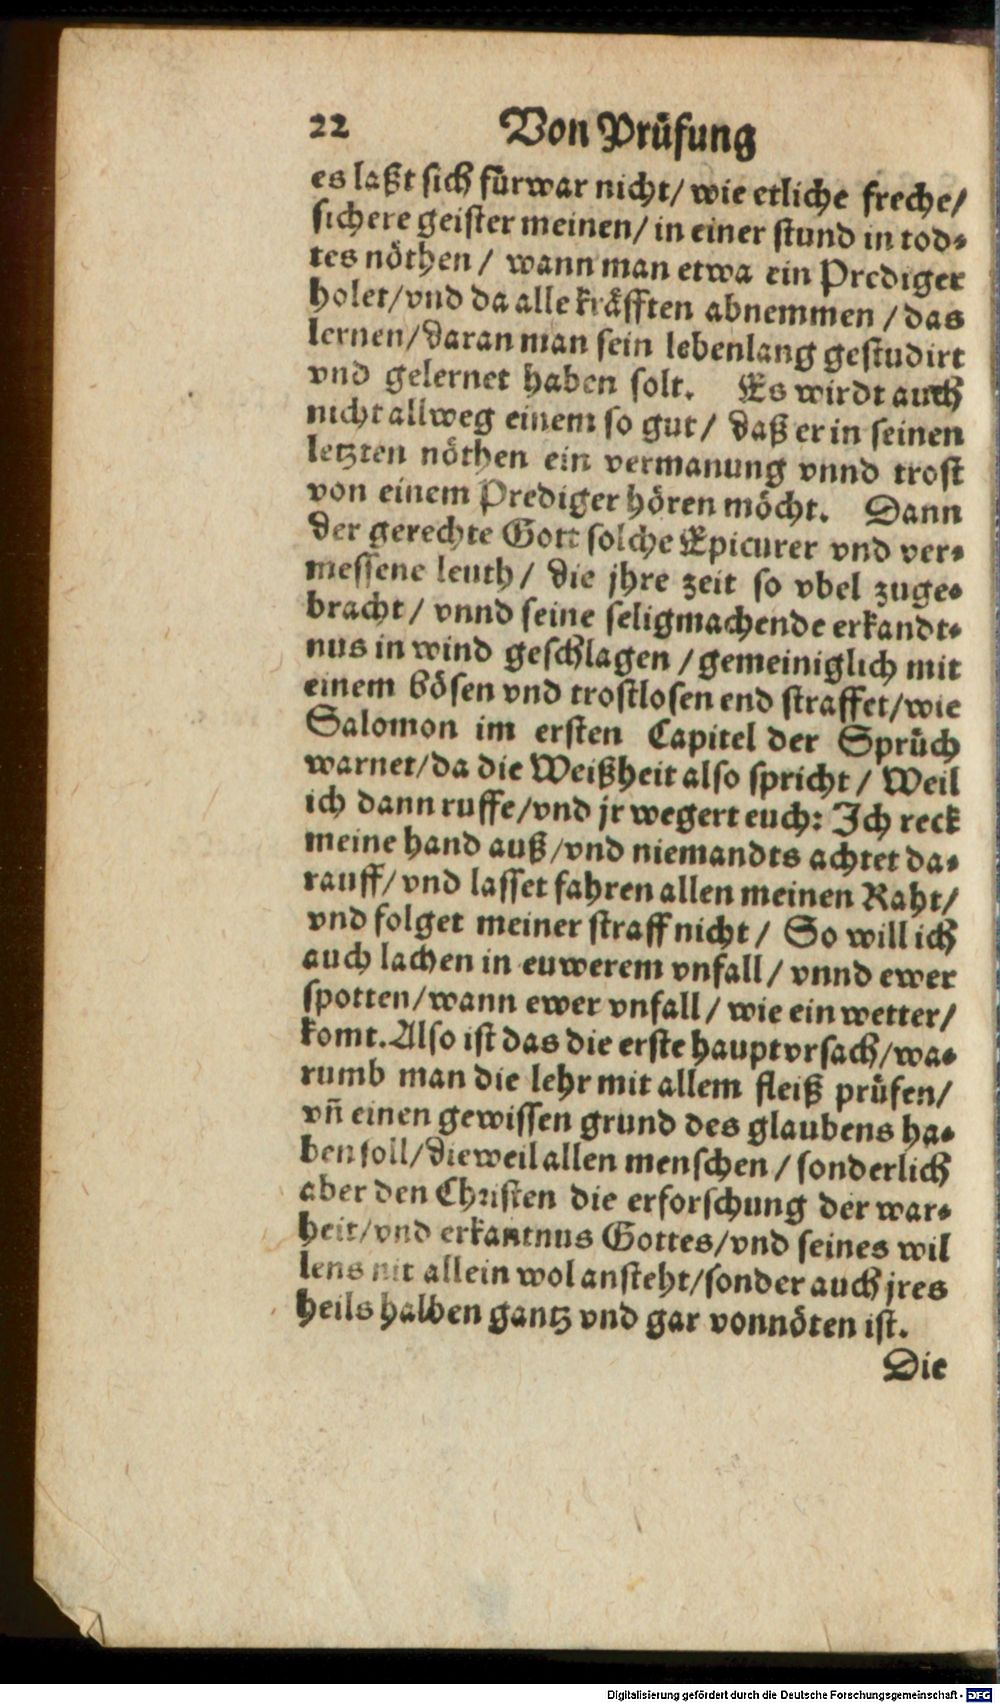 22 Von Prüfung
es laßt sich fürwar nicht/ wie etliche freche/
sichere geister meinen/ in einer stund in tod-
tes nöthen / wann man etwa ein Prediger
holet/vnd da alle kräfften abnemmen / das
lernen/daran man sein lebenlang gestudirt
vnd gelernet haben solt. Es wirdt auch
nicht allweg einem so gut/ daß er in seinen
letzten nöthen ein vermanung vnnd trost
von einem Prediger hören möcht. Dann
der gerechte Gott solche Epicurer vnd ver-
messene leuth/ die jhre zeit so vbel zuge-
bracht/ vnnd seine seligmachende erkandt-
nus in wind geschlagen / gemeiniglich mit
einem bösen vnd trostlosen end straffet/wie
Salomon im ersten Capitel der Sprüch
warnet/da die Weißheit also spricht/ Weil
ich dann ruffe/vnd jr wegert euch: Ich reck
meine hand auß/vnd niemandts achtet da-
rauff/ vnd lasset fahren allen meinen Raht/
vnd folget meiner straff nicht/ So will ich
auch lachen in euwerem vnfall/ vnnd ewer
spotten/wann ewer vnfall/ wie ein wetter/
komt. Also ist das die erste hauptvrsach/wa-
rumb man die lehr mit allem fleiß prüfen/
vñ einen gewissen grund des glaubens ha-
ben soll/dieweil allen menschen / sonderlich
aber den Christen die erforschung der war-
heit/vnd erkantnus Gottes/vnd seines wil
lens nit allein wol ansteht/sonder auch jres
heils halben gantz vnd gar vonnöten ist.
Die
Digitalisierung gefördert durch die Deutsche Forschungsgemeinschaft - DFG